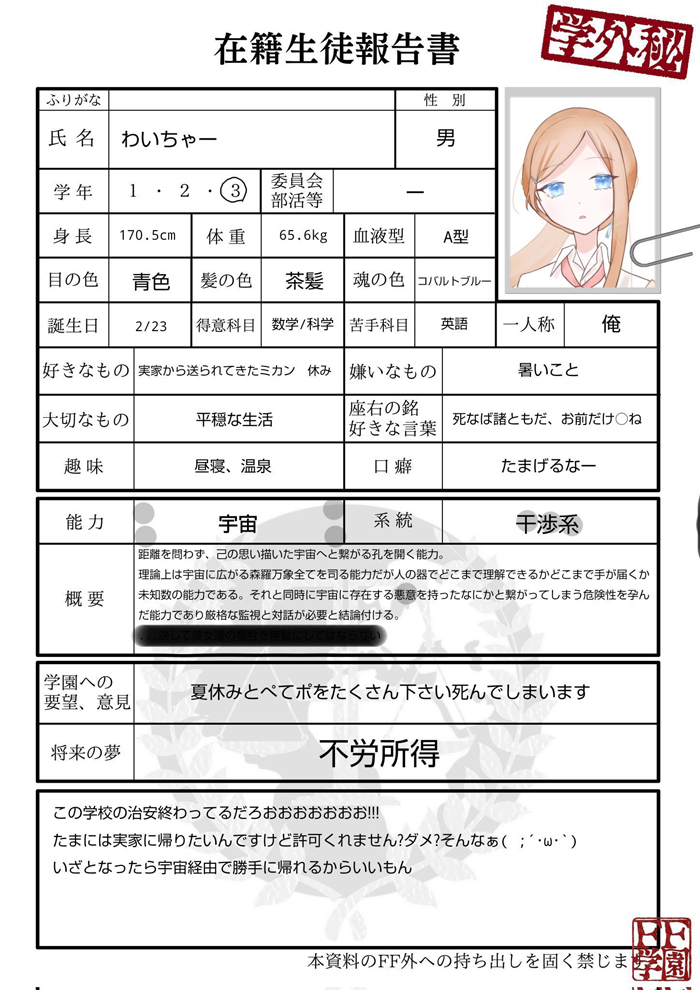 在籍生徒報告書
学外秘
ふりがな
性 別
氏 名 わいちゃー 男
学 年 1 ・ 2 ・ 3 委員会 部活等 ー
身 長 170.5cm 体 重 65.6kg 血液型 A型
目の色 青色 髪の色 茶髪 魂の色 コバルトブルー
誕生日 2/23 得意科目 数学/科学 苦手科目 英語 一人称 俺
好きなもの 実家から送られてきたミカン 休み 嫌いなもの 暑いこと
大切なもの 平穏な生活 座右の銘 好きな言葉 死なば諸ともだ、お前だけ○ね
趣 味 昼寝、温泉 口 癖 たまげるなー
能 力 宇宙 系 統 干渉系
概 要
距離を問わず、己の思い描いた宇宙へと繋がる孔を開く能力。
理論上は宇宙に広がる森羅万象全てを司る能力だが人の器でどこまで理解できるかどこまで手が届くか
未知数の能力である。それと同時に宇宙に存在する悪意を持ったなにかと繋がってしまう危険性を孕ん
だ能力であり厳格な監視と対話が必要と結論付ける。
学園への
要望、意見 夏休みとぺてポをたくさん下さい死んでしまいます
将来の夢 不労所得
この学校の治安終わってるだろおおおおおおお!!!
たまには実家に帰りたいんですけど許可くれません?ダメ?そんなぁ( ;´･ω･`)
いざとなったら宇宙経由で勝手に帰れるからいいもん
本資料のFF外への持ち出しを固く禁じます
FF
学園